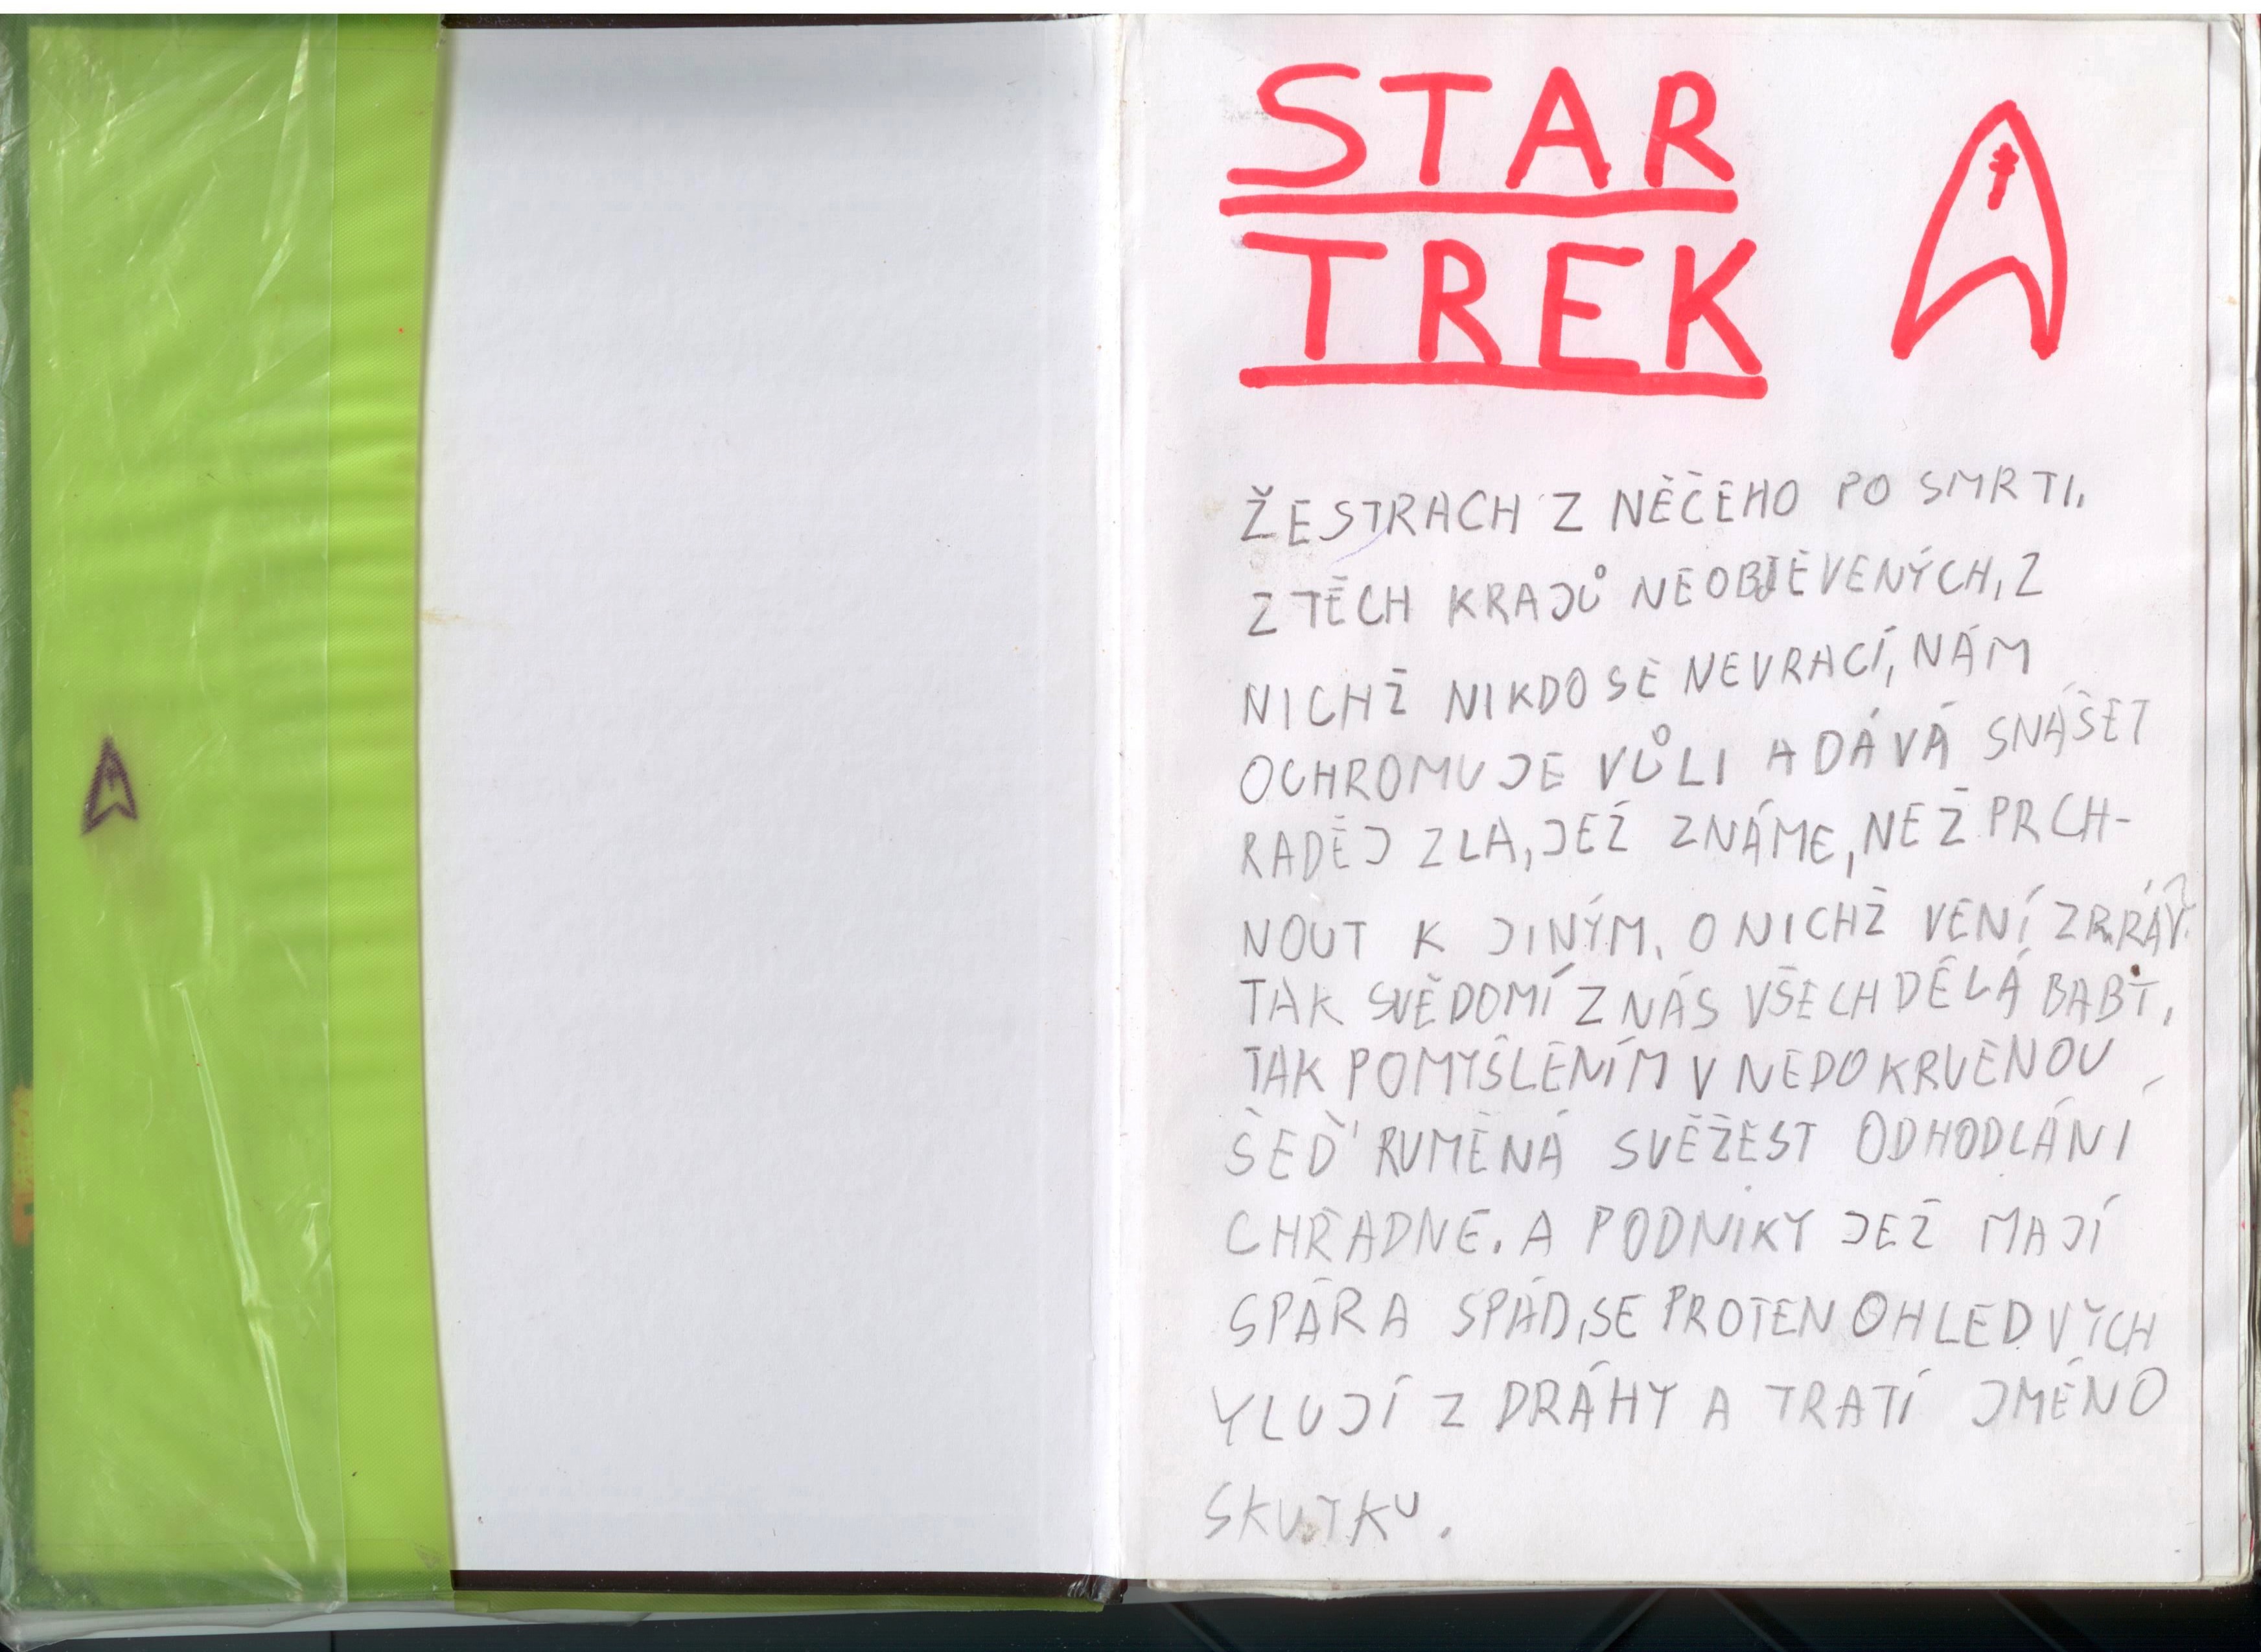 STAR
TREK
ŽE STRACH Z NĚČEHO PO SMRTI,
Z TĚCH KRAJŮ NEOBJEVENÝCH, Z
NICHŽ NIKDO SE NEVRACÍ, NÁM
OCHROMUJE VŮLI A DÁVÁ SNÁŠET
RADĚJ ZLA, JEŽ ZNÁME, NEŽ PRCH-
NOUT K JINÝM, O NICHŽ VENÍ
TAK SVĚDOMÍ Z NÁS VŠECH DĚLÁ BABY,
TAK POMYŠLENÍM V NEDOKRVENOU
ŠEĎ RUMĚNÁ SVĚŽEST ODHODLÁNÍ
CHŘADNE. A PODNIKY JEŽ MAJÍ
SPÁR A SPÁD, SE PRO TEN OHLED VYCH
YLUJÍ Z DRÁHY A TRATÍ JMÉNO
SKUTKU.